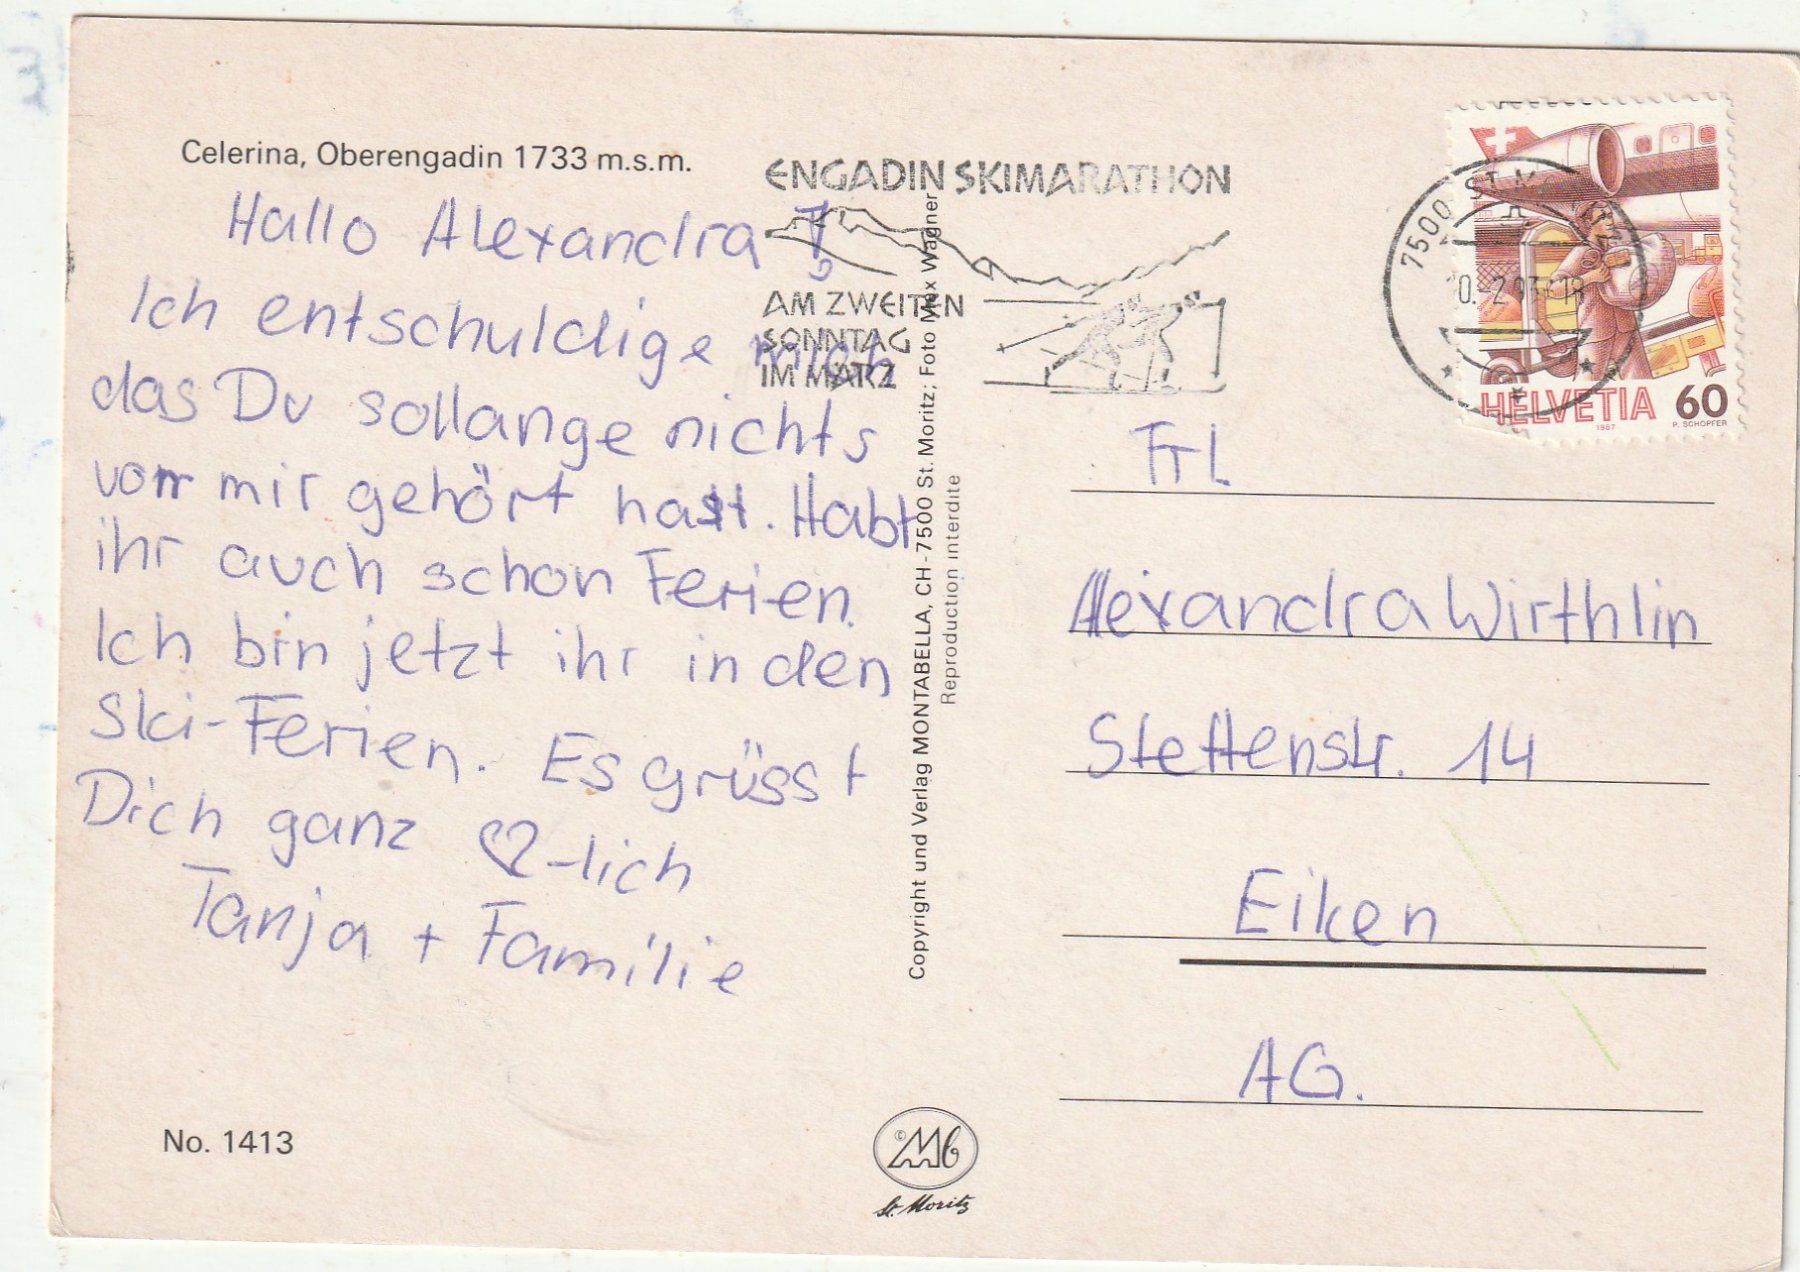 Celerina, Oberengadin 1733 m.s.m.
Hallo Alexandra!
Ich entschuldige mich
das Du sollange nichts
von mir gehört hast. Habt
ihr auch schon Ferien.
Ich bin jetzt ihr in den
Ski-Ferien. Es grüsst
Dich ganz ♡-lich
Tanja + Familie
No. 1413
ENGADIN SKIMARATHON
AM ZWEITEN
SONNTAG
IM MÄRZ
Copyright und Verlag MONTABELLA, CH-7500 St. Moritz; Foto Max Wagner
Reproduction interdite
© Mb
St. Moritz
7500 ST. M
HELVETIA 60
1987 P. SCHOPFER
Frl
Alexandra Wirthlin
Stettenstr. 14
Eiken
AG.